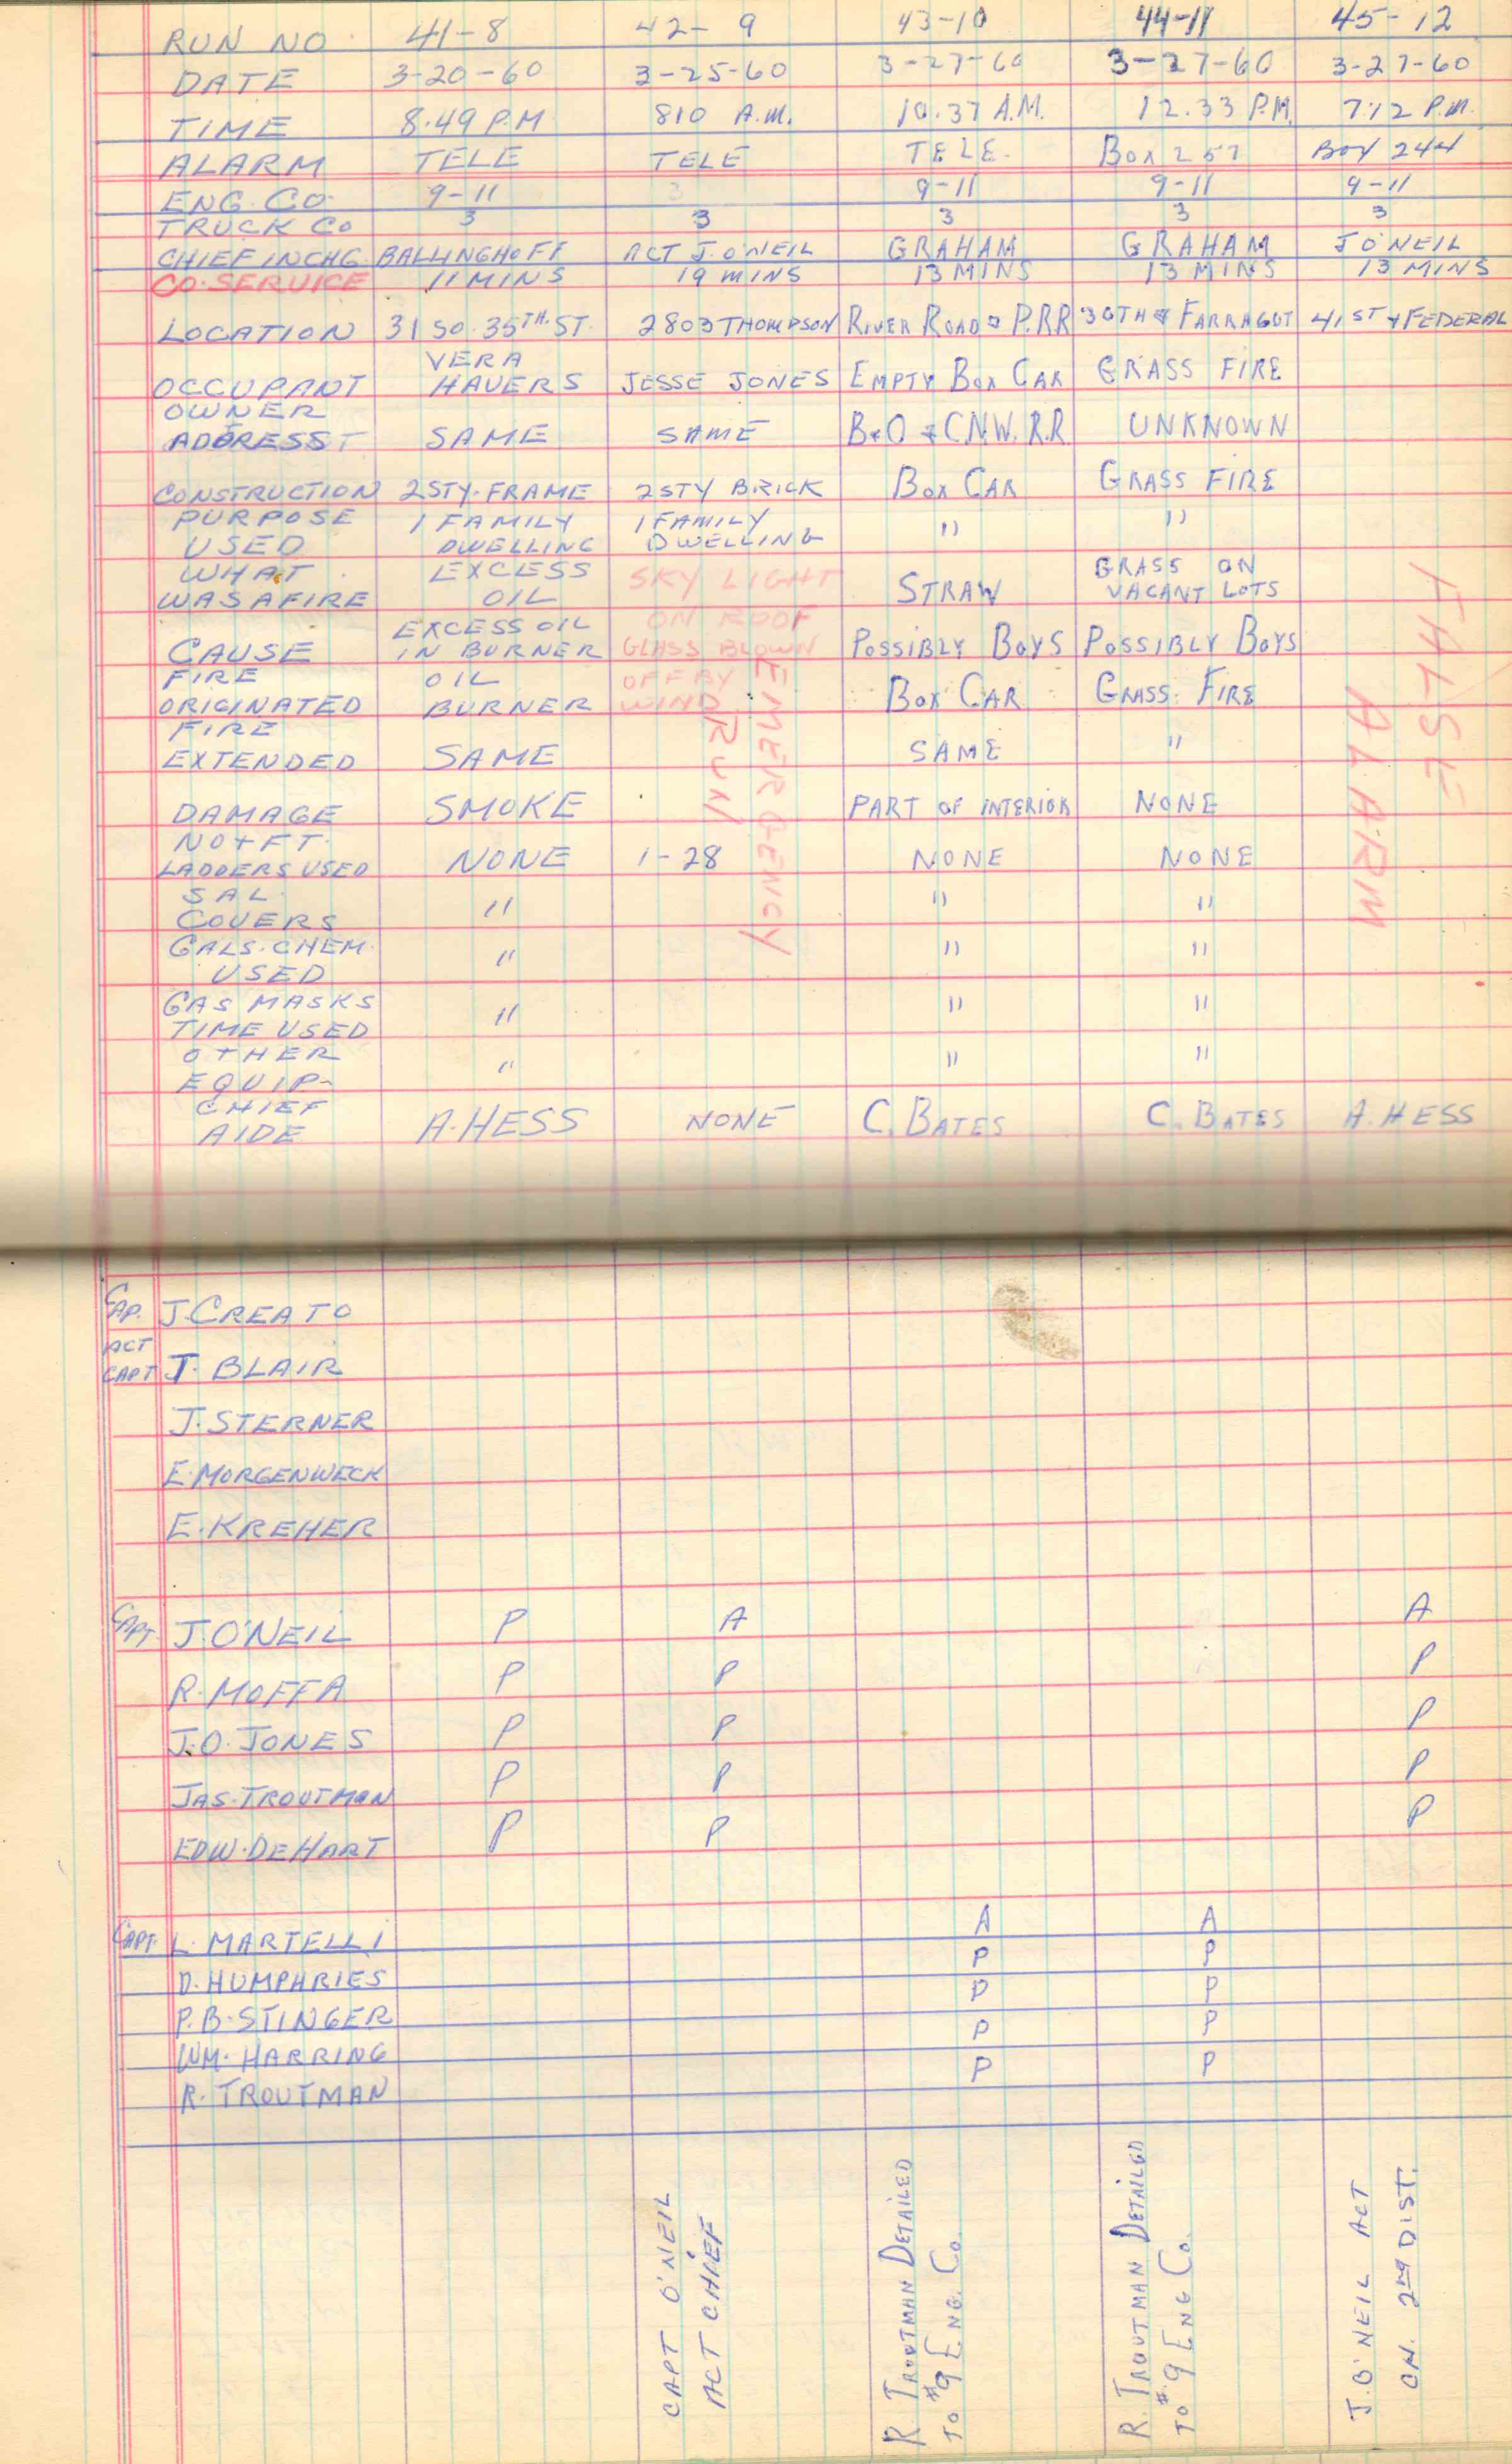 RUN NO. 41-8 42-9 43-10 44-11 45-12
DATE 3-20-60 3-25-60 3-27-60 3-27-60 3-27-60
TIME 8.49 P.M 810 A.M. 10.37 A.M. 12.33 P.M. 7:12 P.M.
ALARM TELE TELE TELE. BOX 257 BOX 244
ENG. CO. 9-11 3 9-11 9-11 9-11
TRUCK CO 3 3 3 3 3
CHIEF IN CHG. BALLINGHOFF ACT J. O'NEIL GRAHAM GRAHAM J O'NEIL
CO. SERVICE 11 MINS 19 MINS 13 MINS 13 MINS 13 MINS
LOCATION 31 SO. 35TH. ST. 2803 THOMPSON RIVER ROAD & P.RR 36TH & FARRAGUT 41ST & FEDERAL
VERA
OCCUPANT HAVERS JESSE JONES EMPTY BOX CAR GRASS FIRE
OWNER
ADDRESS SAME SAME B&O & C.N.W. R.R. UNKNOWN
CONSTRUCTION 2 STY. FRAME 2 STY BRICK BOX CAR GRASS FIRE
PURPOSE 1 FAMILY 1 FAMILY " "
USED DWELLING DWELLING
WHAT EXCESS SKY LIGHT GRASS ON
WAS AFIRE OIL ON ROOF STRAW VACANT LOTS
EXCESS OIL
CAUSE IN BURNER GLASS BLOWN POSSIBLY BOYS POSSIBLY BOYS
FIRE OIL OFF BY
ORIGINATED BURNER WIND BOX CAR GRASS FIRE
FIRE
EXTENDED SAME SAME "
DAMAGE SMOKE PART OF INTERIOR NONE
NO + FT.
LADDERS USED NONE 1-28 NONE NONE
SAL.
COVERS " " "
GALS. CHEM.
USED " " "
GAS MASKS
TIME USED " " "
OTHER
EQUIP- " " "
CHIEF
AIDE A. HESS NONE C. BATES C. BATES A. HESS
EMERGENCY
RUN
FALSE
ALARM
CAP. J. CREATO
ACT
CAPT J. BLAIR
J. STERNER
E. MORGENWECK
E. KREHER
CAPT. J. O'NEIL P A A
R. MOFFA P P P
J.O. JONES P P P
JAS. TROUTMAN P P P
EDW. DEHART P P P
CAPT. L. MARTELLI A A
D. HUMPHRIES P P
P.B. STINGER P P
WM. HARRING P P
R. TROUTMAN P P
CAPT O'NEIL
ACT CHIEF
R. TROUTMAN DETAILED
TO #9 ENG. CO.
R. TROUTMAN DETAILED
TO #9 ENG CO.
J. O'NEIL ACT
CH. 2ND DIST.